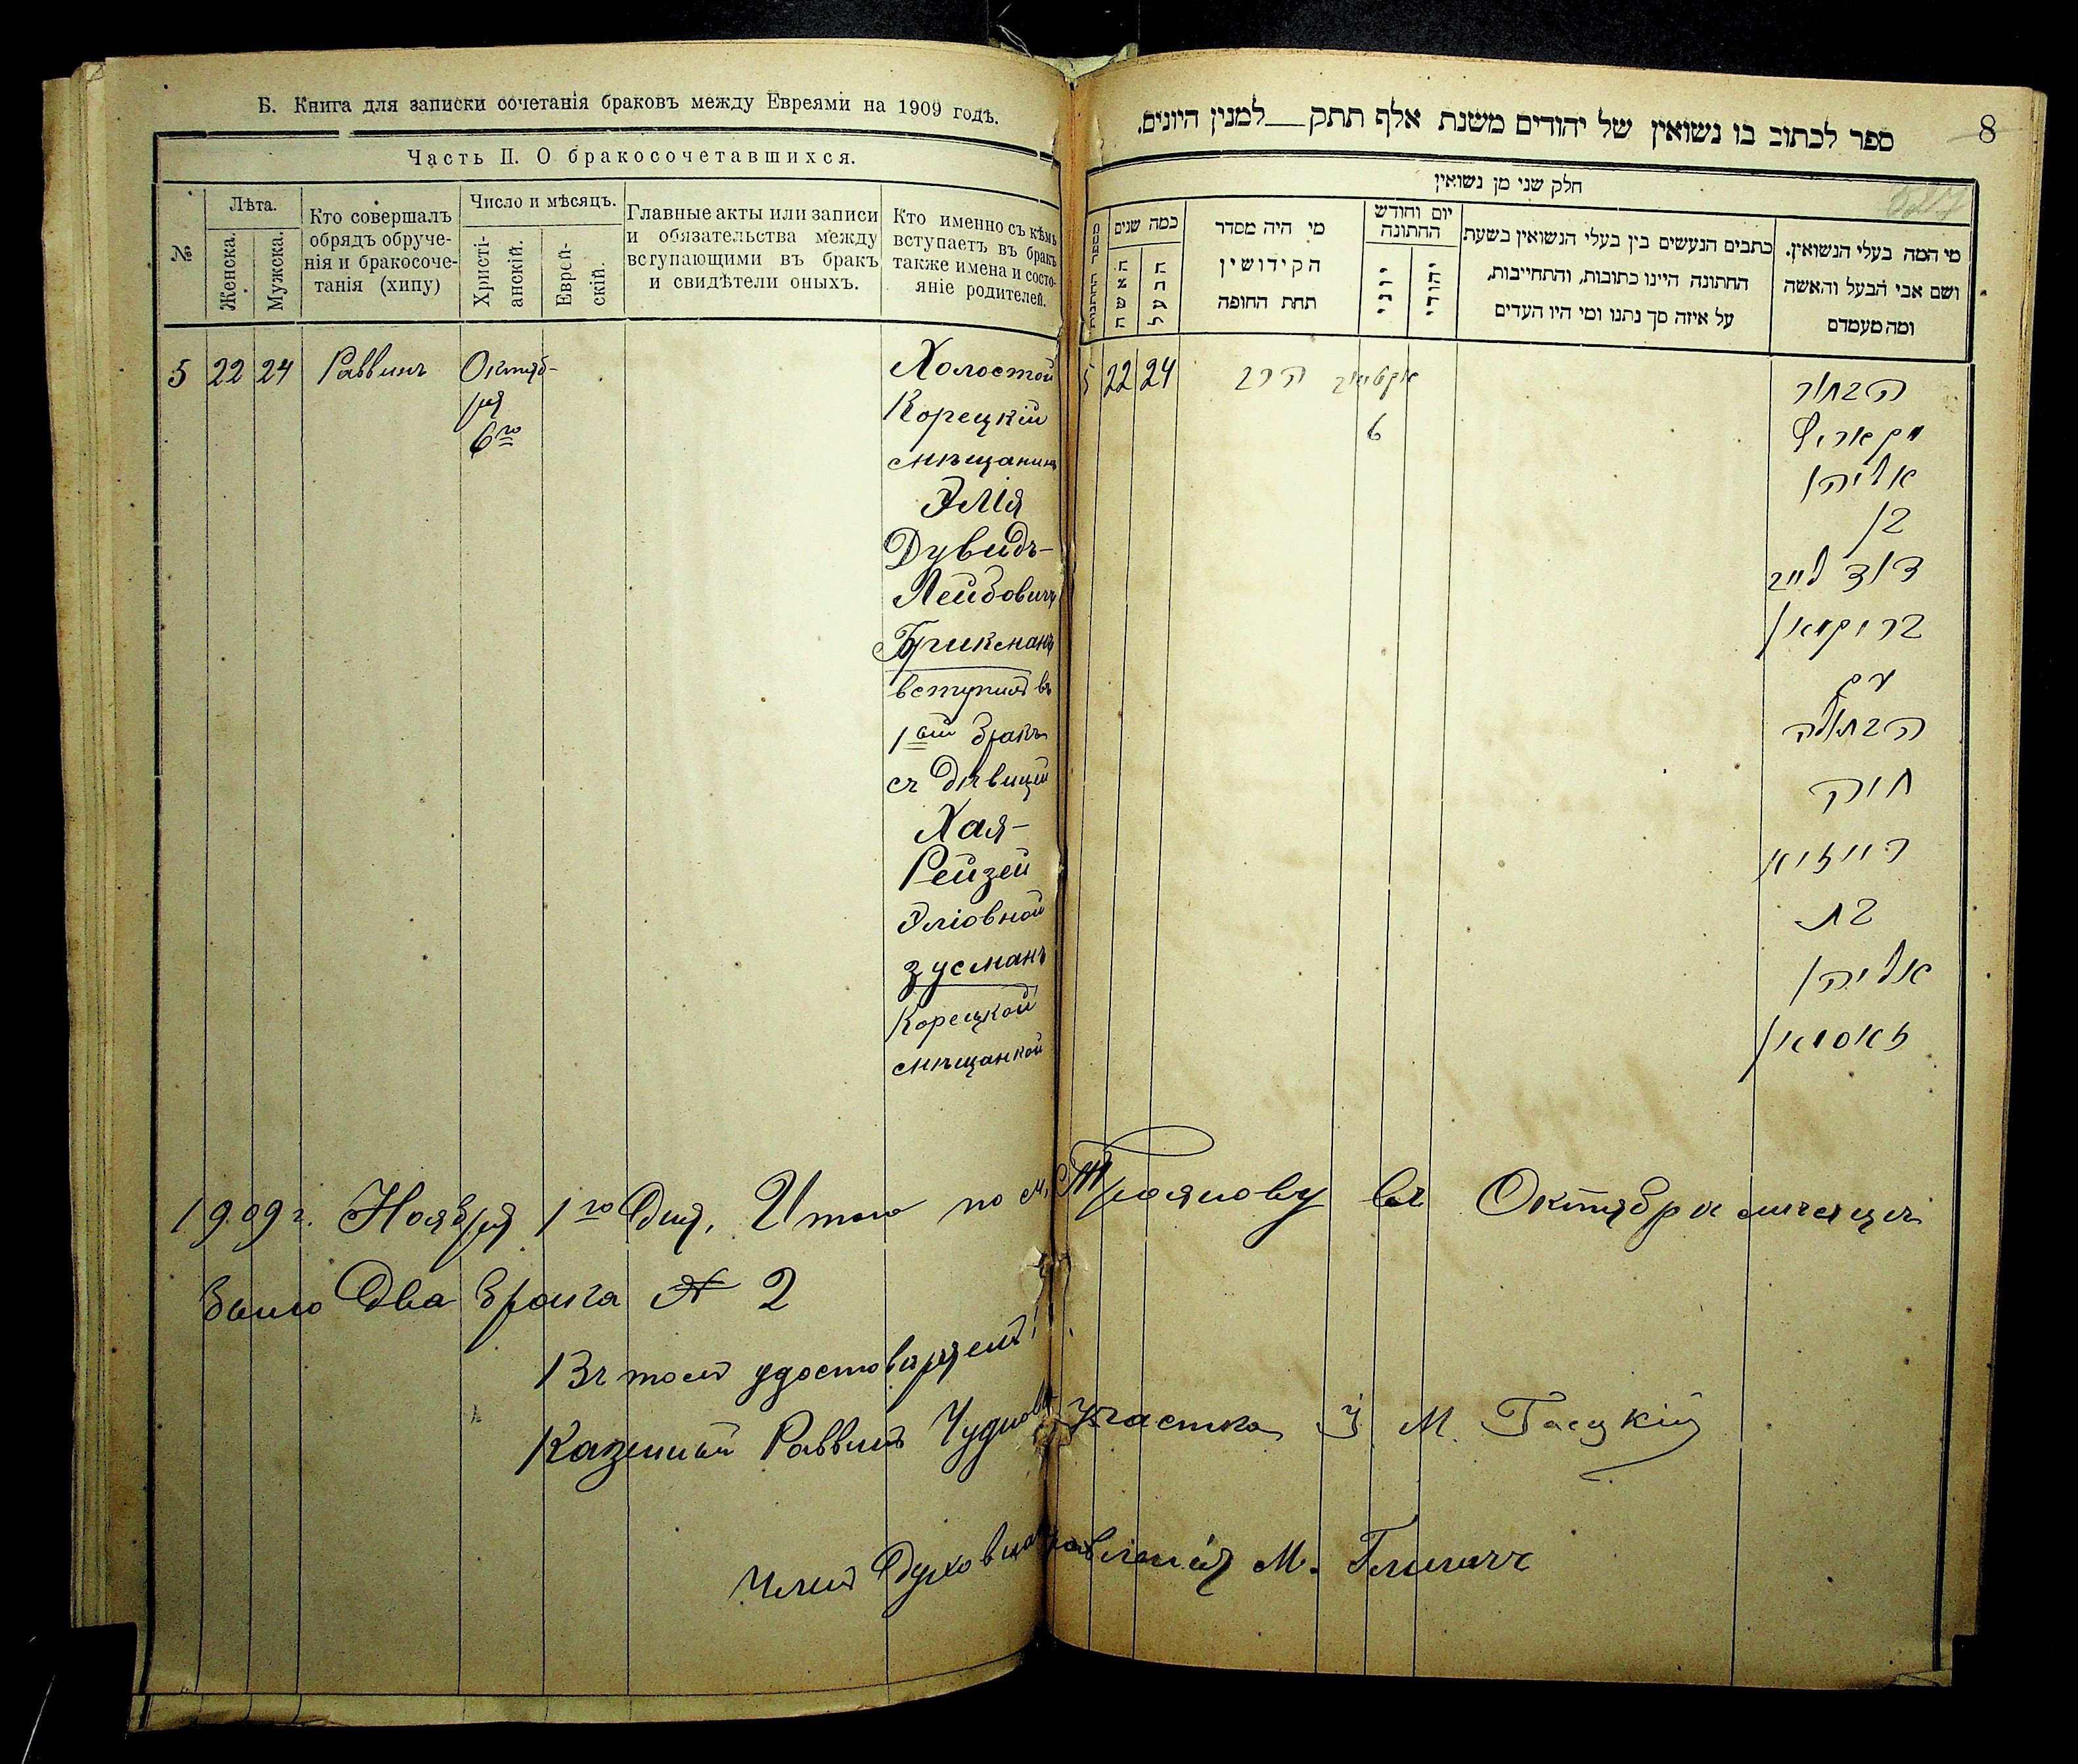 Б. Книга для записки сочетанія браковъ между Евреями на 1909 годъ.
Часть II. О бракосочетавшихся.
№
Лѣта.
Женска.
Мужска.
Кто совершалъ
обрядъ обруче-
нія и бракосоче-
танія (хипу)
Число и мѣсяцъ.
Христі-
анскій.
Еврей-
скій.
Главные акты или записи
и обязательства между
вступающими въ бракъ
и свидѣтели оныхъ.
Кто именно съ кѣмъ
вступаетъ въ бракъ
также имена и состо-
яніе родителей.
5 22 24 Раввинъ Октяб-
ря
6го
Холостой
Корецкій
мѣщанинъ
Элія
Дувидъ-
Лейбовичъ
Брикманъ
вступилъ въ
1ый бракъ
съ дѣвицей
Хая-
Рейзей
Эліовной
Зусманъ
Корецкой
мѣщанкой
8
ספר לכתוב בו נשואין של יהודים משנת אלף תתק__למנין היונים.
חלק שני מן נשואין
מספר החתונות
כמה שנים
האשה
הבעל
מי היה מסדר
הקידושין
תחת החופה
יום וחודש
החתונה
יוני
יהודי
כתבים הנעשים בין בעלי הנשואין בשעת
החתונה היינו כתובות, והתחייבות,
על איזה סך נתנו ומי היו העדים
מי המה בעלי הנשואין.
ושם אבי הבעל והאשה
ומה מעמדם
5 22 24 הרב
6
הבחור
אליהו
בן
דוד לייב
בריקמאן
עם
הבתולה
חיה
רייזיא
בת
אליהו
זאסמאן
1909 г. Ноября 1го дня, Итого по м. Троянову въ Октябрѣ мѣсяцѣ
было два брака № 2
Въ томъ удостовѣряемъ
Казенный Раввинъ Чудновск участка М. Гасцкій
Членъ Духовнаго Правленія М.